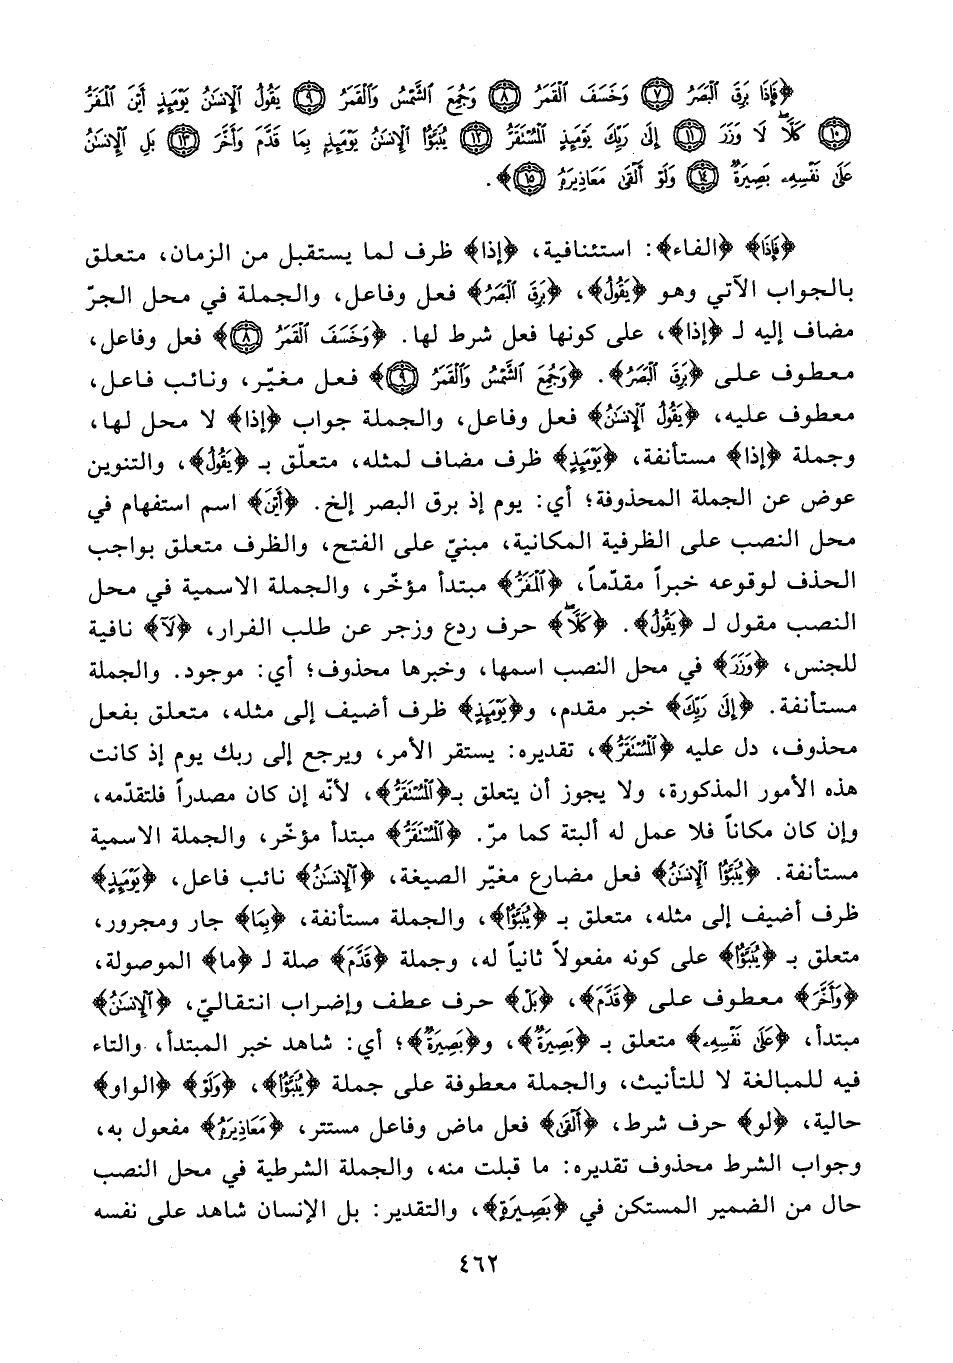 ﴿فَإِذَا بَرِقَ ٱلْبَصَرُ ۝٧ وَخَسَفَ ٱلْقَمَرُ ۝٨ وَجُمِعَ ٱلشَّمْسُ وَٱلْقَمَرُ ۝٩ يَقُولُ ٱلْإِنسَٰنُ يَوْمَئِذٍ أَيْنَ ٱلْمَفَرُّ
۝١٠ كَلَّا لَا وَزَرَ ۝١١ إِلَىٰ رَبِّكَ يَوْمَئِذٍ ٱلْمُسْتَقَرُّ ۝١٢ يُنَبَّؤُا۟ ٱلْإِنسَٰنُ يَوْمَئِذٍۭ بِمَا قَدَّمَ وَأَخَّرَ ۝١٣ بَلِ ٱلْإِنسَٰنُ
عَلَىٰ نَفْسِهِۦ بَصِيرَةٌ ۝١٤ وَلَوْ أَلْقَىٰ مَعَاذِيرَهُۥ ۝١٥﴾.
﴿فَإِذَا﴾ ﴿الفاء﴾: استئنافية، ﴿إذا﴾ ظرف لما يستقبل من الزمان، متعلق
بالجواب الآتي وهو ﴿يَقُولُ﴾، ﴿بَرِقَ ٱلْبَصَرُ﴾ فعل وفاعل، والجملة في محل الجرّ
مضاف إليه لـ ﴿إذا﴾، على كونها فعل شرط لها. ﴿وَخَسَفَ ٱلْقَمَرُ ۝٨﴾ فعل وفاعل،
معطوف على ﴿بَرِقَ ٱلْبَصَرُ﴾. ﴿وَجُمِعَ ٱلشَّمْسُ وَٱلْقَمَرُ ۝٩﴾ فعل مغيّر، ونائب فاعل،
معطوف عليه، ﴿يَقُولُ ٱلْإِنسَٰنُ﴾ فعل وفاعل، والجملة جواب ﴿إذا﴾ لا محل لها،
وجملة ﴿إذا﴾ مستأنفة، ﴿يَوْمَئِذٍ﴾ ظرف مضاف لمثله، متعلّق بـ ﴿يَقُولُ﴾، والتنوين
عوض عن الجملة المحذوفة؛ أي: يوم إذ برق البصر إلخ. ﴿أَيْنَ﴾ اسم استفهام في
محل النصب على الظرفية المكانية، مبنيّ على الفتح، والظرف متعلق بواجب
الحذف لوقوعه خبراً مقدّماً، ﴿ٱلْمَفَرُّ﴾ مبتدأ مؤخّر، والجملة الاسمية في محل
النصب مقول لـ ﴿يَقُولُ﴾. ﴿كَلَّا﴾ حرف ردع وزجر عن طلب الفرار، ﴿لَا﴾ نافية
للجنس، ﴿وَزَرَ﴾ في محل النصب اسمها، وخبرها محذوف؛ أي: موجود. والجملة
مستأنفة. ﴿إِلَىٰ رَبِّكَ﴾ خبر مقدم، و﴿يَوْمَئِذٍ﴾ ظرف أضيف إلى مثله، متعلق بفعل
محذوف، دل عليه ﴿ٱلْمُسْتَقَرُّ﴾، تقديره: يستقر الأمر، ويرجع إلى ربك يوم إذ كانت
هذه الأمور المذكورة، ولا يجوز أن يتعلق بـ﴿ٱلْمُسْتَقَرُّ﴾، لأنّه إن كان مصدراً فلتقدّمه،
وإن كان مكاناً فلا عمل له ألبتة كما مرّ. ﴿ٱلْمُسْتَقَرُّ﴾ مبتدأ مؤخّر، والجملة الاسمية
مستأنفة. ﴿يُنَبَّؤُا۟ ٱلْإِنسَٰنُ﴾ فعل مضارع مغيّر الصيغة، ﴿ٱلْإِنسَٰنُ﴾ نائب فاعل، ﴿يَوْمَئِذٍ﴾
ظرف أضيف إلى مثله، متعلق بـ ﴿يُنَبَّؤُا۟﴾، والجملة مستأنفة، ﴿بِمَا﴾ جار ومجرور،
متعلق بـ ﴿يُنَبَّؤُا۟﴾ على كونه مفعولاً ثانياً له، وجملة ﴿قَدَّمَ﴾ صلة لـ ﴿ما﴾ الموصولة،
﴿وَأَخَّرَ﴾ معطوف على ﴿قَدَّمَ﴾، ﴿بَلِ﴾ حرف عطف وإضراب انتقاليّ، ﴿ٱلْإِنسَٰنُ﴾
مبتدأ، ﴿عَلَىٰ نَفْسِهِۦ﴾ متعلق بـ ﴿بَصِيرَةٌ﴾، و﴿بَصِيرَةٌ﴾؛ أي: شاهد خبر المبتدأ، والتاء
فيه للمبالغة لا للتأنيث، والجملة معطوفة على جملة ﴿يُنَبَّؤُا۟﴾، ﴿وَلَوْ﴾ ﴿الواو﴾
حالية، ﴿لو﴾ حرف شرط، ﴿أَلْقَىٰ﴾ فعل ماض وفاعل مستتر، ﴿مَعَاذِيرَهُۥ﴾ مفعول به،
وجواب الشرط محذوف تقديره: ما قبلت منه، والجملة الشرطية في محل النصب
حال من الضمير المستكن في ﴿بَصِيرَةٍ﴾، والتقدير: بل الإنسان شاهد على نفسه
٤٦٢